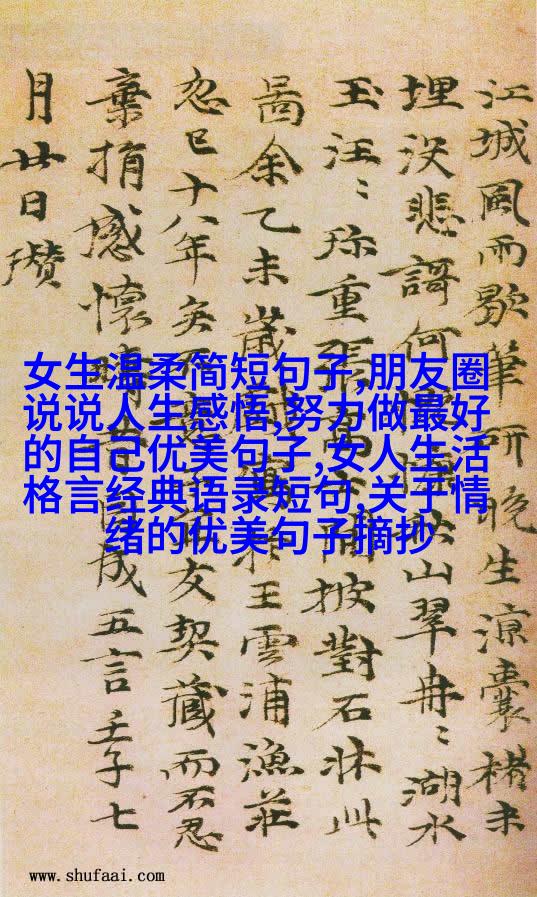 江城風雨歇筆研晚生涼囊楮未
埋没悲謌何山翠冉〻湖水
玉汪〻珎重張高披對石牀此
啚余乙未歲王雲浦漁莊
忽已十八年矣不友契藏而不忍
棄捐感懷成五言壬子七
月廿日瓚
女生温柔简短句子,朋友圈
说说人生感悟,努力做最好
的自己优美句子,女人生活
格言经典语录短句,关于情
绪的优美句子摘抄
www.shufaai.com